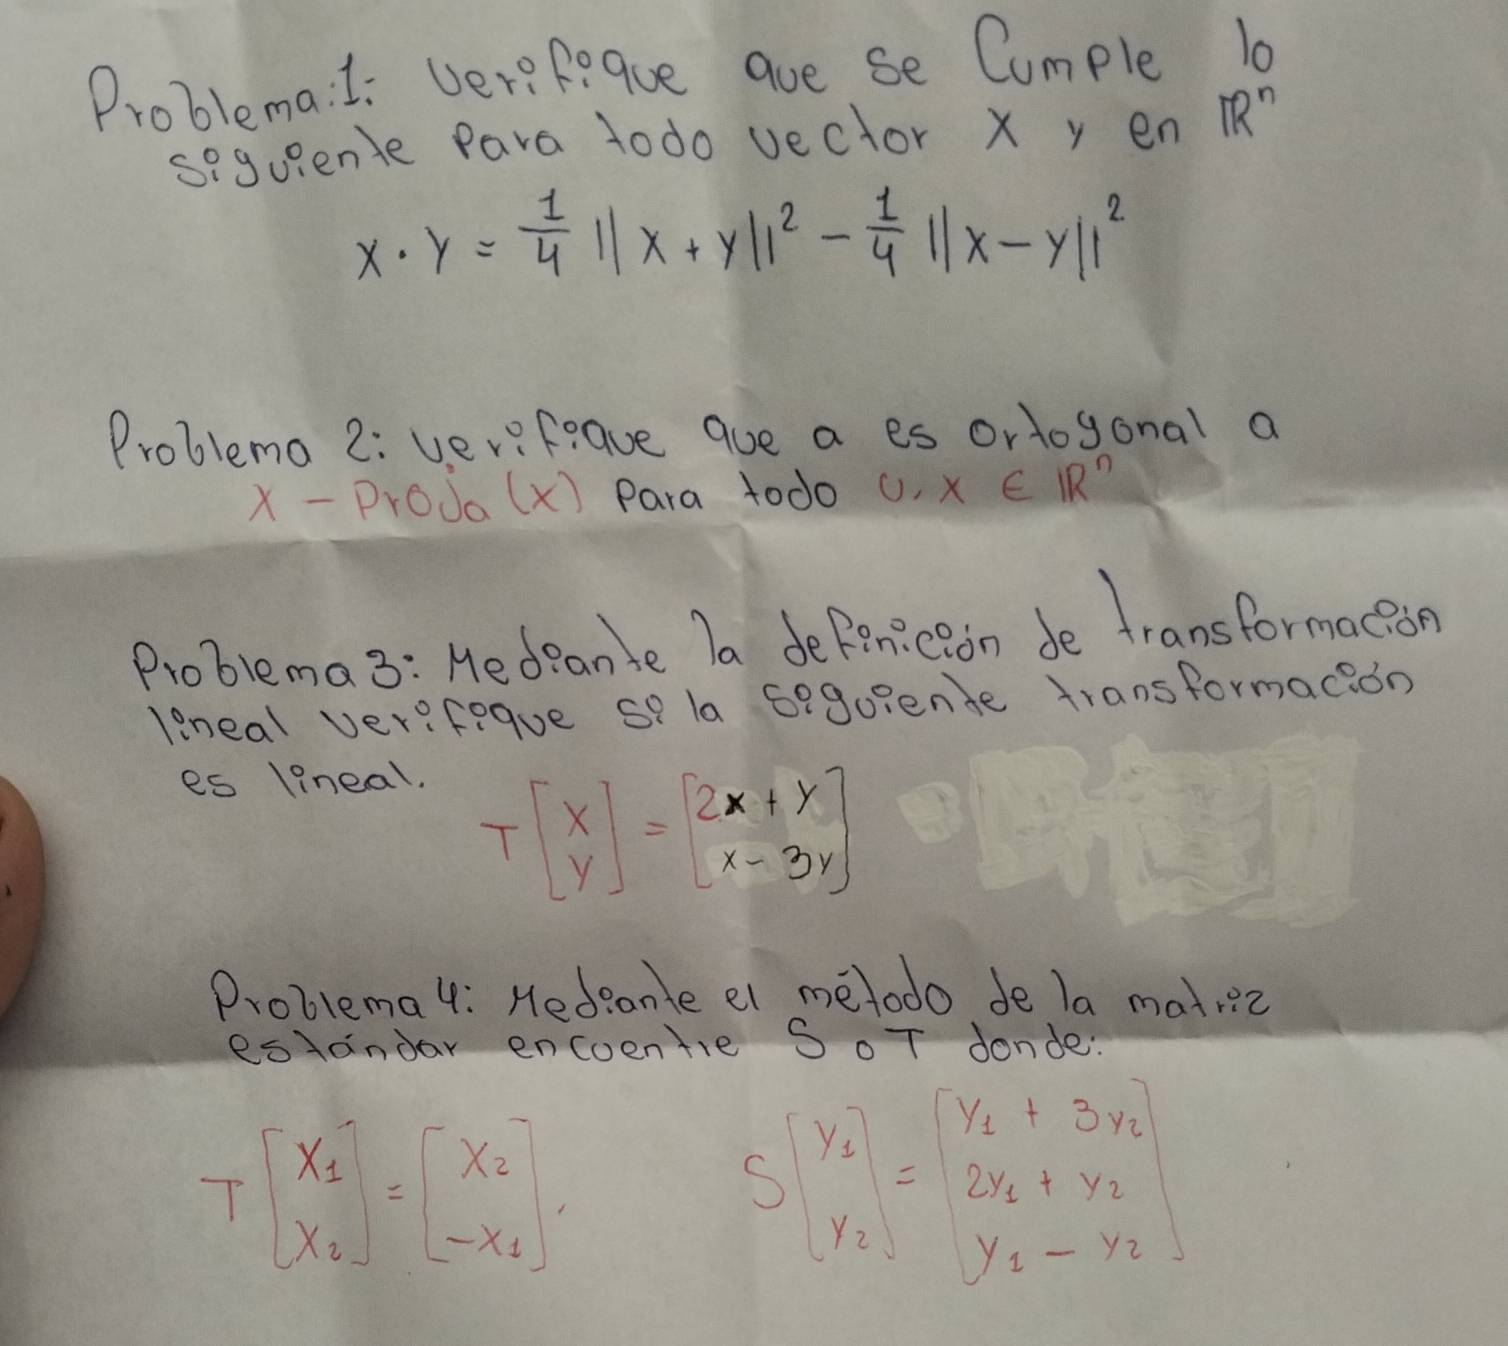 Problema:1: Verifique que se Cumple lo
siguiente Para todo vector X y en ℝⁿ
X · Y = 1/4 ||X + Y||² - 1/4 ||X - Y||²
Problema 2: Verifique que a es ortogonal a
X - Proja (X) Para todo U, X ∈ ℝⁿ
Problema 3: Mediante la definición de transformación
lineal verifique si la siguiente transformación
es lineal.
T [X Y] = [2x + Y x - 3y]
Problema 4: Mediante el método de la matriz
estándar encuentre S o T donde:
T [X₁ X₂] = [X₂ -X₁], S [Y₁ Y₂] = [Y₁ + 3Y₂ 2Y₁ + Y₂ Y₁ - Y₂]